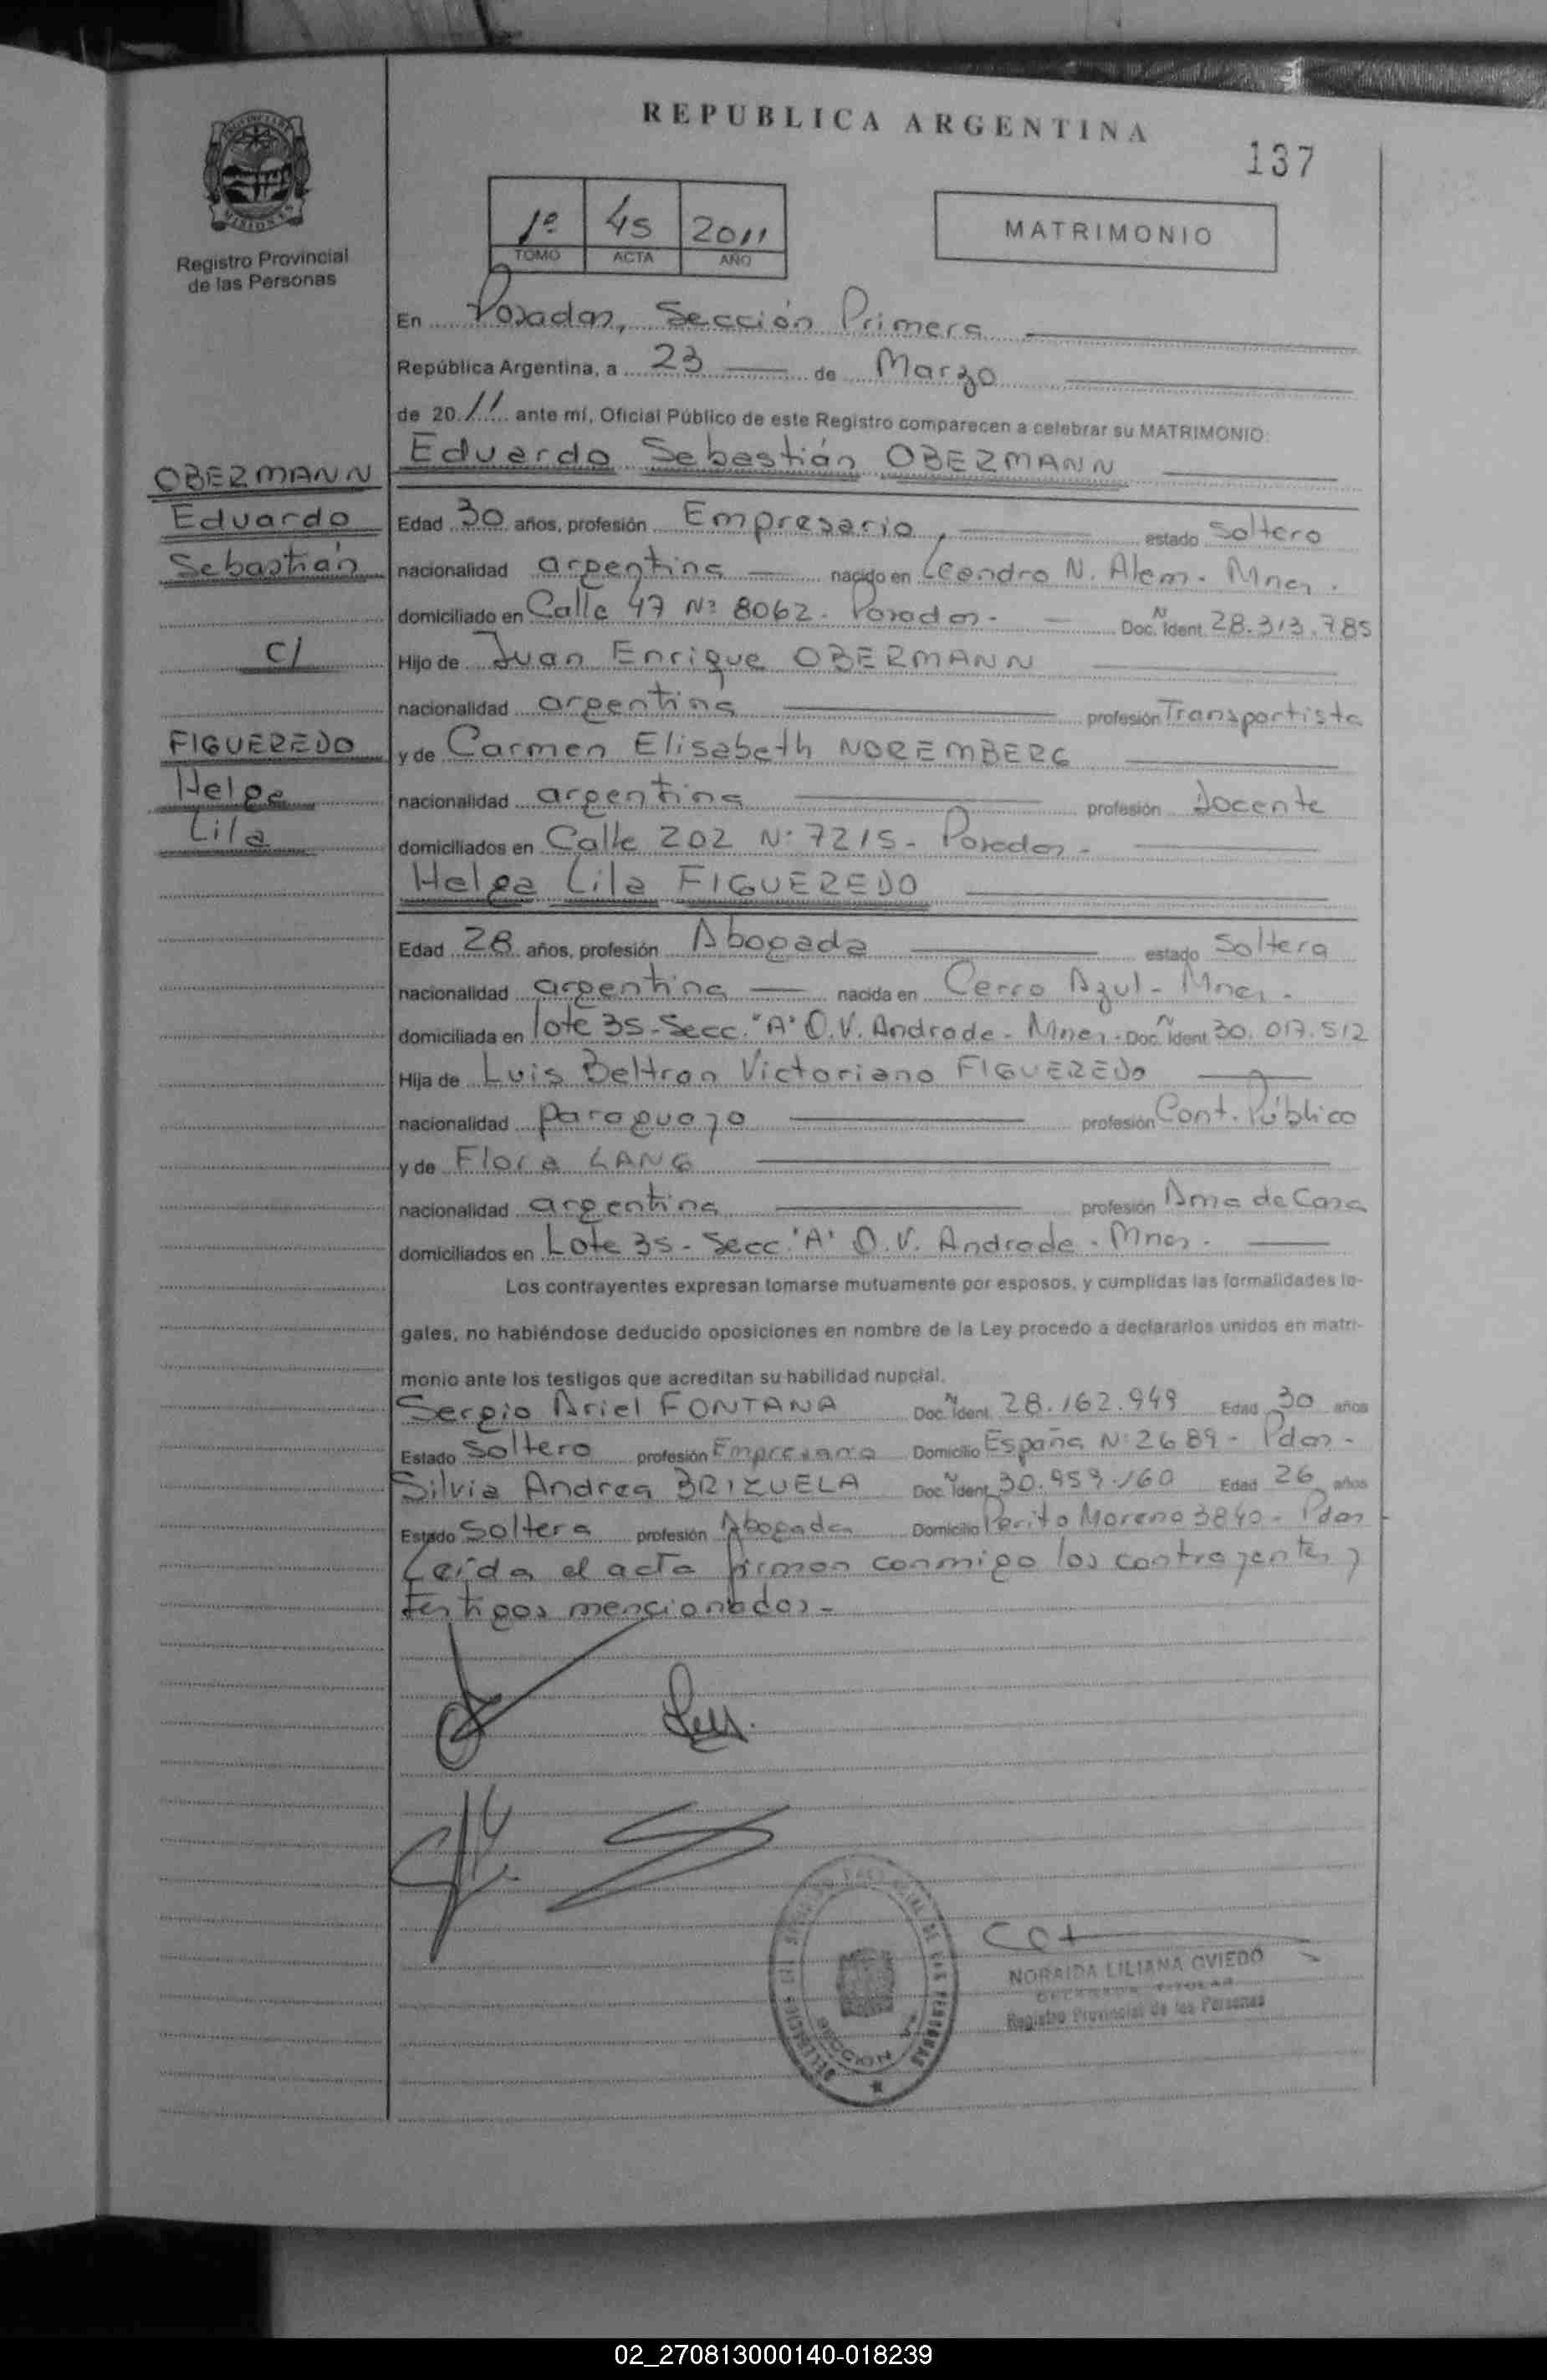 REPUBLICA ARGENTINA
137
PROVINCIA DE
MISIONES
Registro Provincial
de las Personas
1º 45 2011
TOMO ACTA AÑO
MATRIMONIO
En Posadas, Sección Primera
República Argentina, a 23 de Marzo
de 2011 ante mí, Oficial Público de este Registro comparecen a celebrar su MATRIMONIO:
OBERMANN
Eduardo
Sebastián
c/
FIGUEREDO
Helga
Lila
Eduardo Sebastián OBERMANN
Edad 30 años, profesión Empresario estado Soltero
nacionalidad argentina nacido en Leandro N. Alem. Mnes.
domiciliado en Calle 47 Nº 8062. Posadas- Doc. N Ident. 28.313.785
Hijo de Juan Enrique OBERMANN
nacionalidad argentina profesión Transportista
y de Carmen Elisabeth NOREMBERG
nacionalidad argentina profesión docente
domiciliados en Calle 202 Nº 7215- Posadas-
Helga Lila FIGUEREDO
Edad 28 años, profesión Abogada estado Soltera
nacionalidad argentina nacida en Cerro Azul- Mnes.
domiciliada en lote 35-Secc."A" O.V. Andrade- Mnes-Doc. N Ident 30.017.512
Hija de Luis Beltran Victoriano FIGUEREDO
nacionalidad paraguayo profesión Cont. Público
y de Flora LANG
nacionalidad argentina profesión Ama de Casa
domiciliados en Lote 35- Secc."A" O.V. Andrade. Mnes.
Los contrayentes expresan tomarse mutuamente por esposos, y cumplidas las formalidades le-
gales, no habiéndose deducido oposiciones en nombre de la Ley procedo a declararlos unidos en matri-
monio ante los testigos que acreditan su habilidad nupcial.
Sergio Ariel FONTANA Doc. N Ident. 28.162.949 Edad 30 años
Estado Soltero profesión Empresario Domicilio España Nº 2689- Pdas-
Silvia Andrea BRIZUELA Doc. N Ident. 30.959.160 Edad 26 años
Estado Soltera profesión Abogada Domicilio Perito Moreno 3840- Pdas
Leída el acta firman conmigo los contrayentes y
testigos mencionados-
NORAIDA LILIANA OVIEDO
TITULAR
Registro Provincial de las Personas
DE LAS PERSONAS
SECCION
02_270813000140-018239